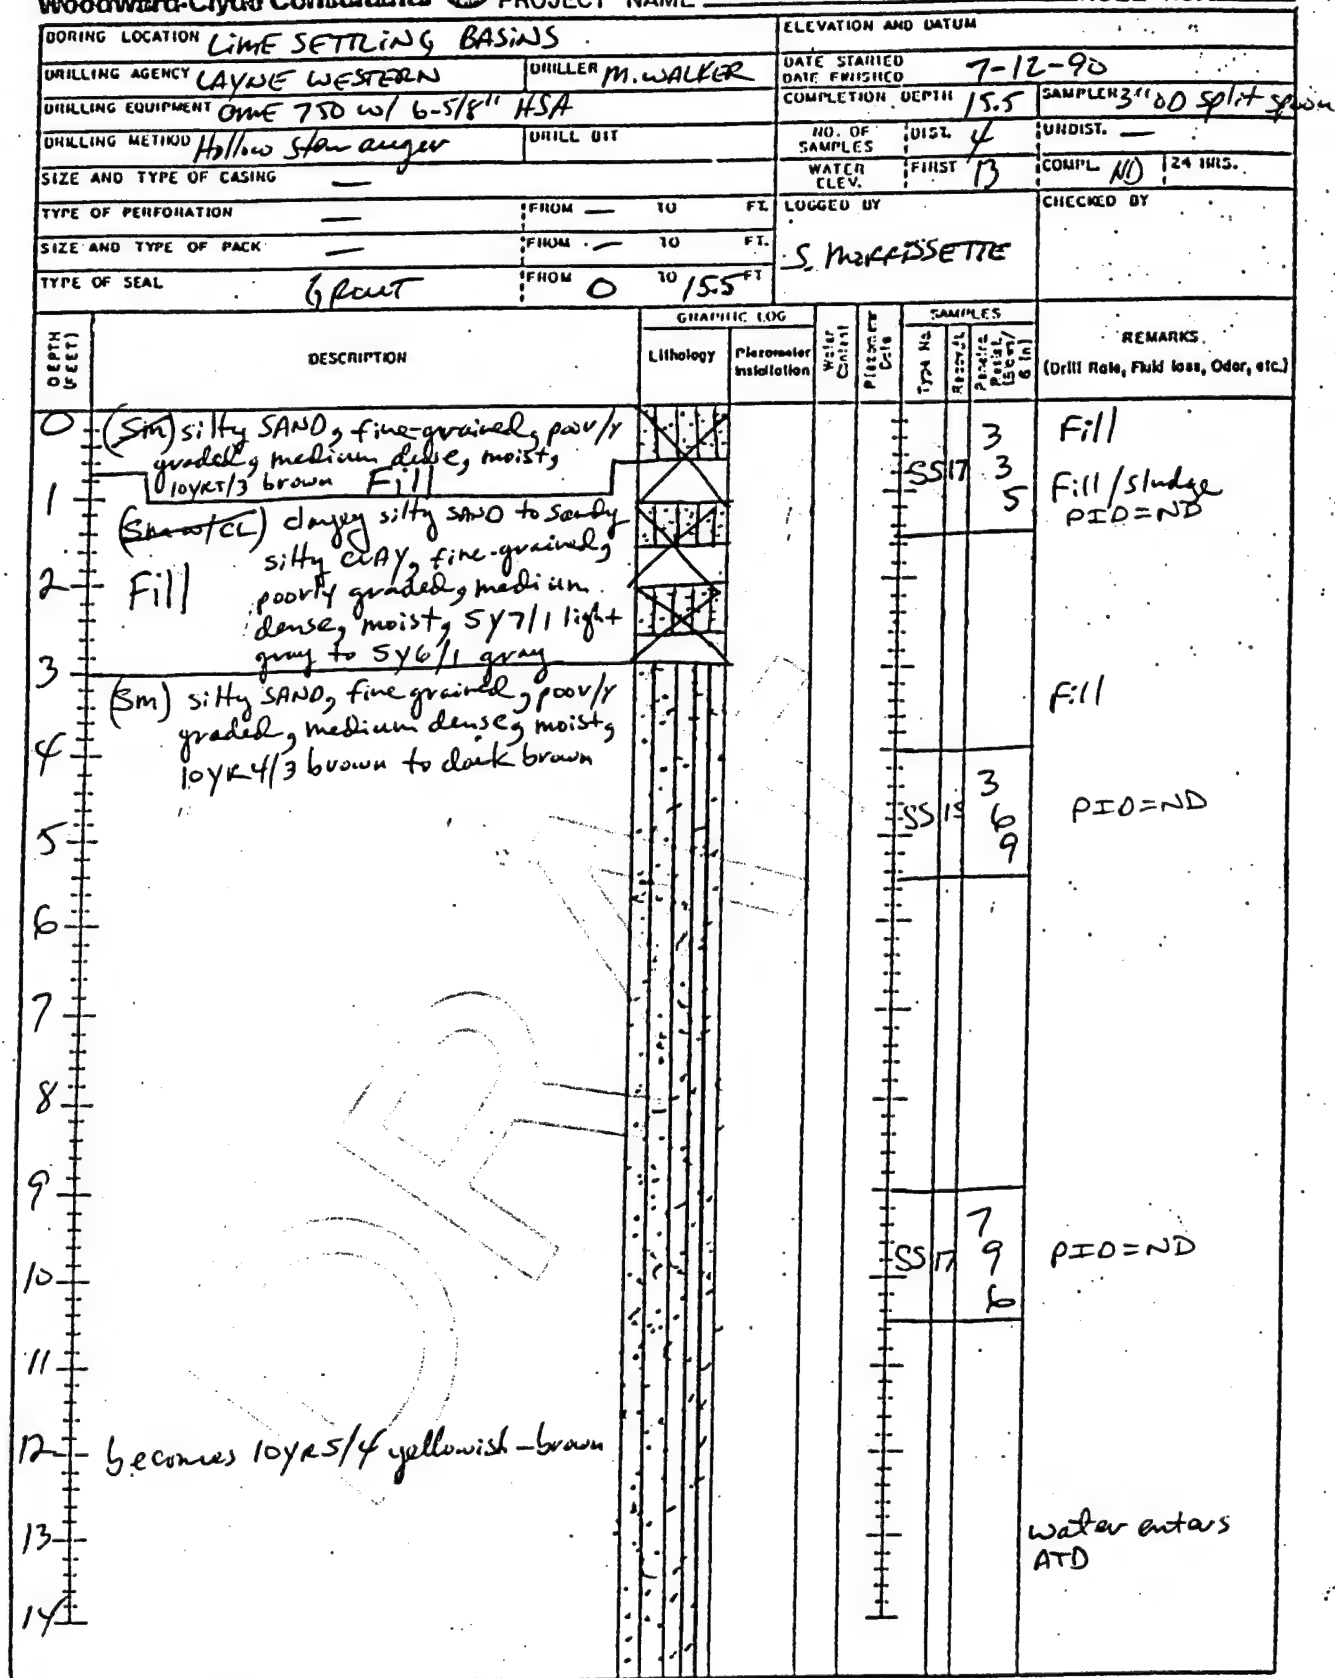 Woodward-Clyde Consultants PROJECT NAME
BORING LOCATION LIME SETTLING BASINS
ELEVATION AND DATUM
DRILLING AGENCY LAYNE WESTERN DRILLER M. WALKER
DATE STARTED 7-12-90
DATE FINISHED
DRILLING EQUIPMENT CME 750 w/ 6-5/8" HSA
COMPLETION DEPTH 15.5 SAMPLER 3" OD Split spoon
DRILLING METHOD Hollow Stem auger DRILL BIT
NO. OF SAMPLES DIST. 4 UNDIST. —
SIZE AND TYPE OF CASING —
WATER ELEV. FIRST 13 COMPL. ND 24 HRS.
TYPE OF PERFORATION — FROM — TO FT.
LOGGED BY S. MORRISSETTE
CHECKED BY
SIZE AND TYPE OF PACK — FROM — TO FT.
TYPE OF SEAL GROUT FROM 0 TO 15.5 FT
DEPTH (FEET)
DESCRIPTION
GRAPHIC LOG
Lithology
Piezometer Installation
Water Content
Piezometer Data
SAMPLES
Type No
REMARKS
(Drill Rate, Fluid loss, Odor, etc.)
0 (SM) silty SAND, fine-grained, poorly
graded, medium dense, moist,
10YR5/3 brown Fill
1
clayey silty SAND to Sandy
silty CLAY, fine-grained,
2 Fill poorly graded, medium
dense, moist, 5Y7/1 light
gray to 5Y6/1 gray
3
(SM) silty SAND, fine grained, poorly
graded, medium dense, moist,
4
10YR4/3 brown to dark brown
5
6
7
8
9
10
11
12 becomes 10YR5/4 yellowish-brown
13
14
SS 17 3
3
5
Fill
Fill/sludge
PID=ND
Fill
SS 15 3
6
9
PID=ND
SS 17 7
9
6
PID=ND
water enters
ATD
DRAFT